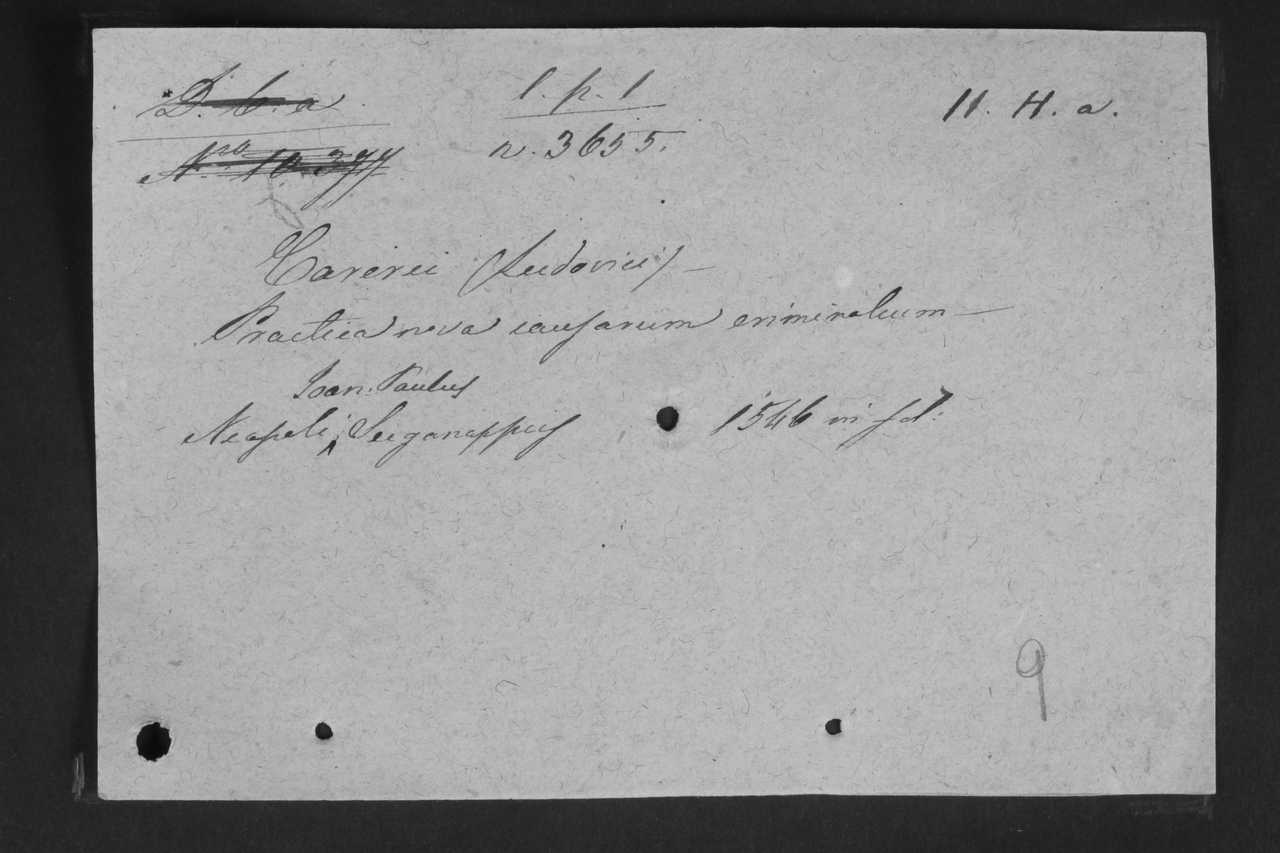 D. 6. a
l. p. 1
11. H. a.
Nro 10377
n. 3655.
Carerei (Ludovici)
Practica nova causarum criminalium
Ioan. Paulus
Neapoli, Suganappus 1546 in fol.
9